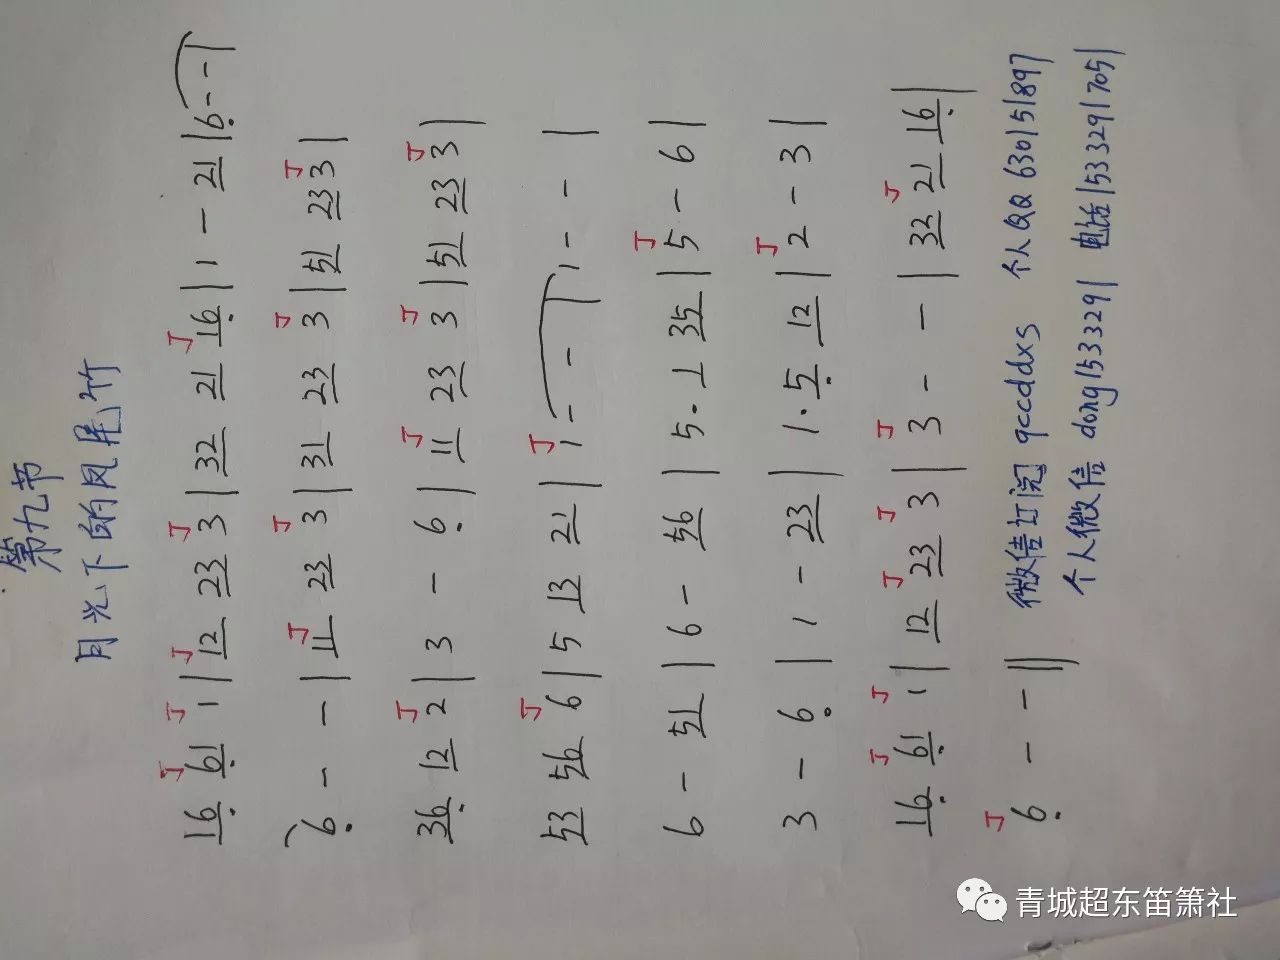 第九节
月光下的凤尾竹
16̣ 6̣1 1 | 12 23 3 | 32 21 16̣ | 1 - 21 | 6̣ - - |
6̣ - - | 11 23 3 | 31 23 3 | 51 23 3 |
36̣ 12 2 | 3 - 6̣ | 11 23 3 | 51 23 3 |
53 56 6 | 5 13 21 | 1 - - | 1 - - |
6 - 51 | 6 - 56 | 5. 1 35 | 5 - 6 |
3 - 6̣ | 1 - 23 | 1. 5̣ 12 | 2 - 3 |
16̣ 6̣1 1 | 12 23 3 | 3 - - | 32 21 16̣ |
6̣ - - ||
微信订阅 qccddxs 个人QQ 630151897
个人微信 dong1533291 电话15332917051
青城超东笛箫社